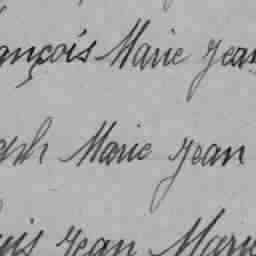 ançois Marie Jean
eph Marie Jean
uis Jean Marie